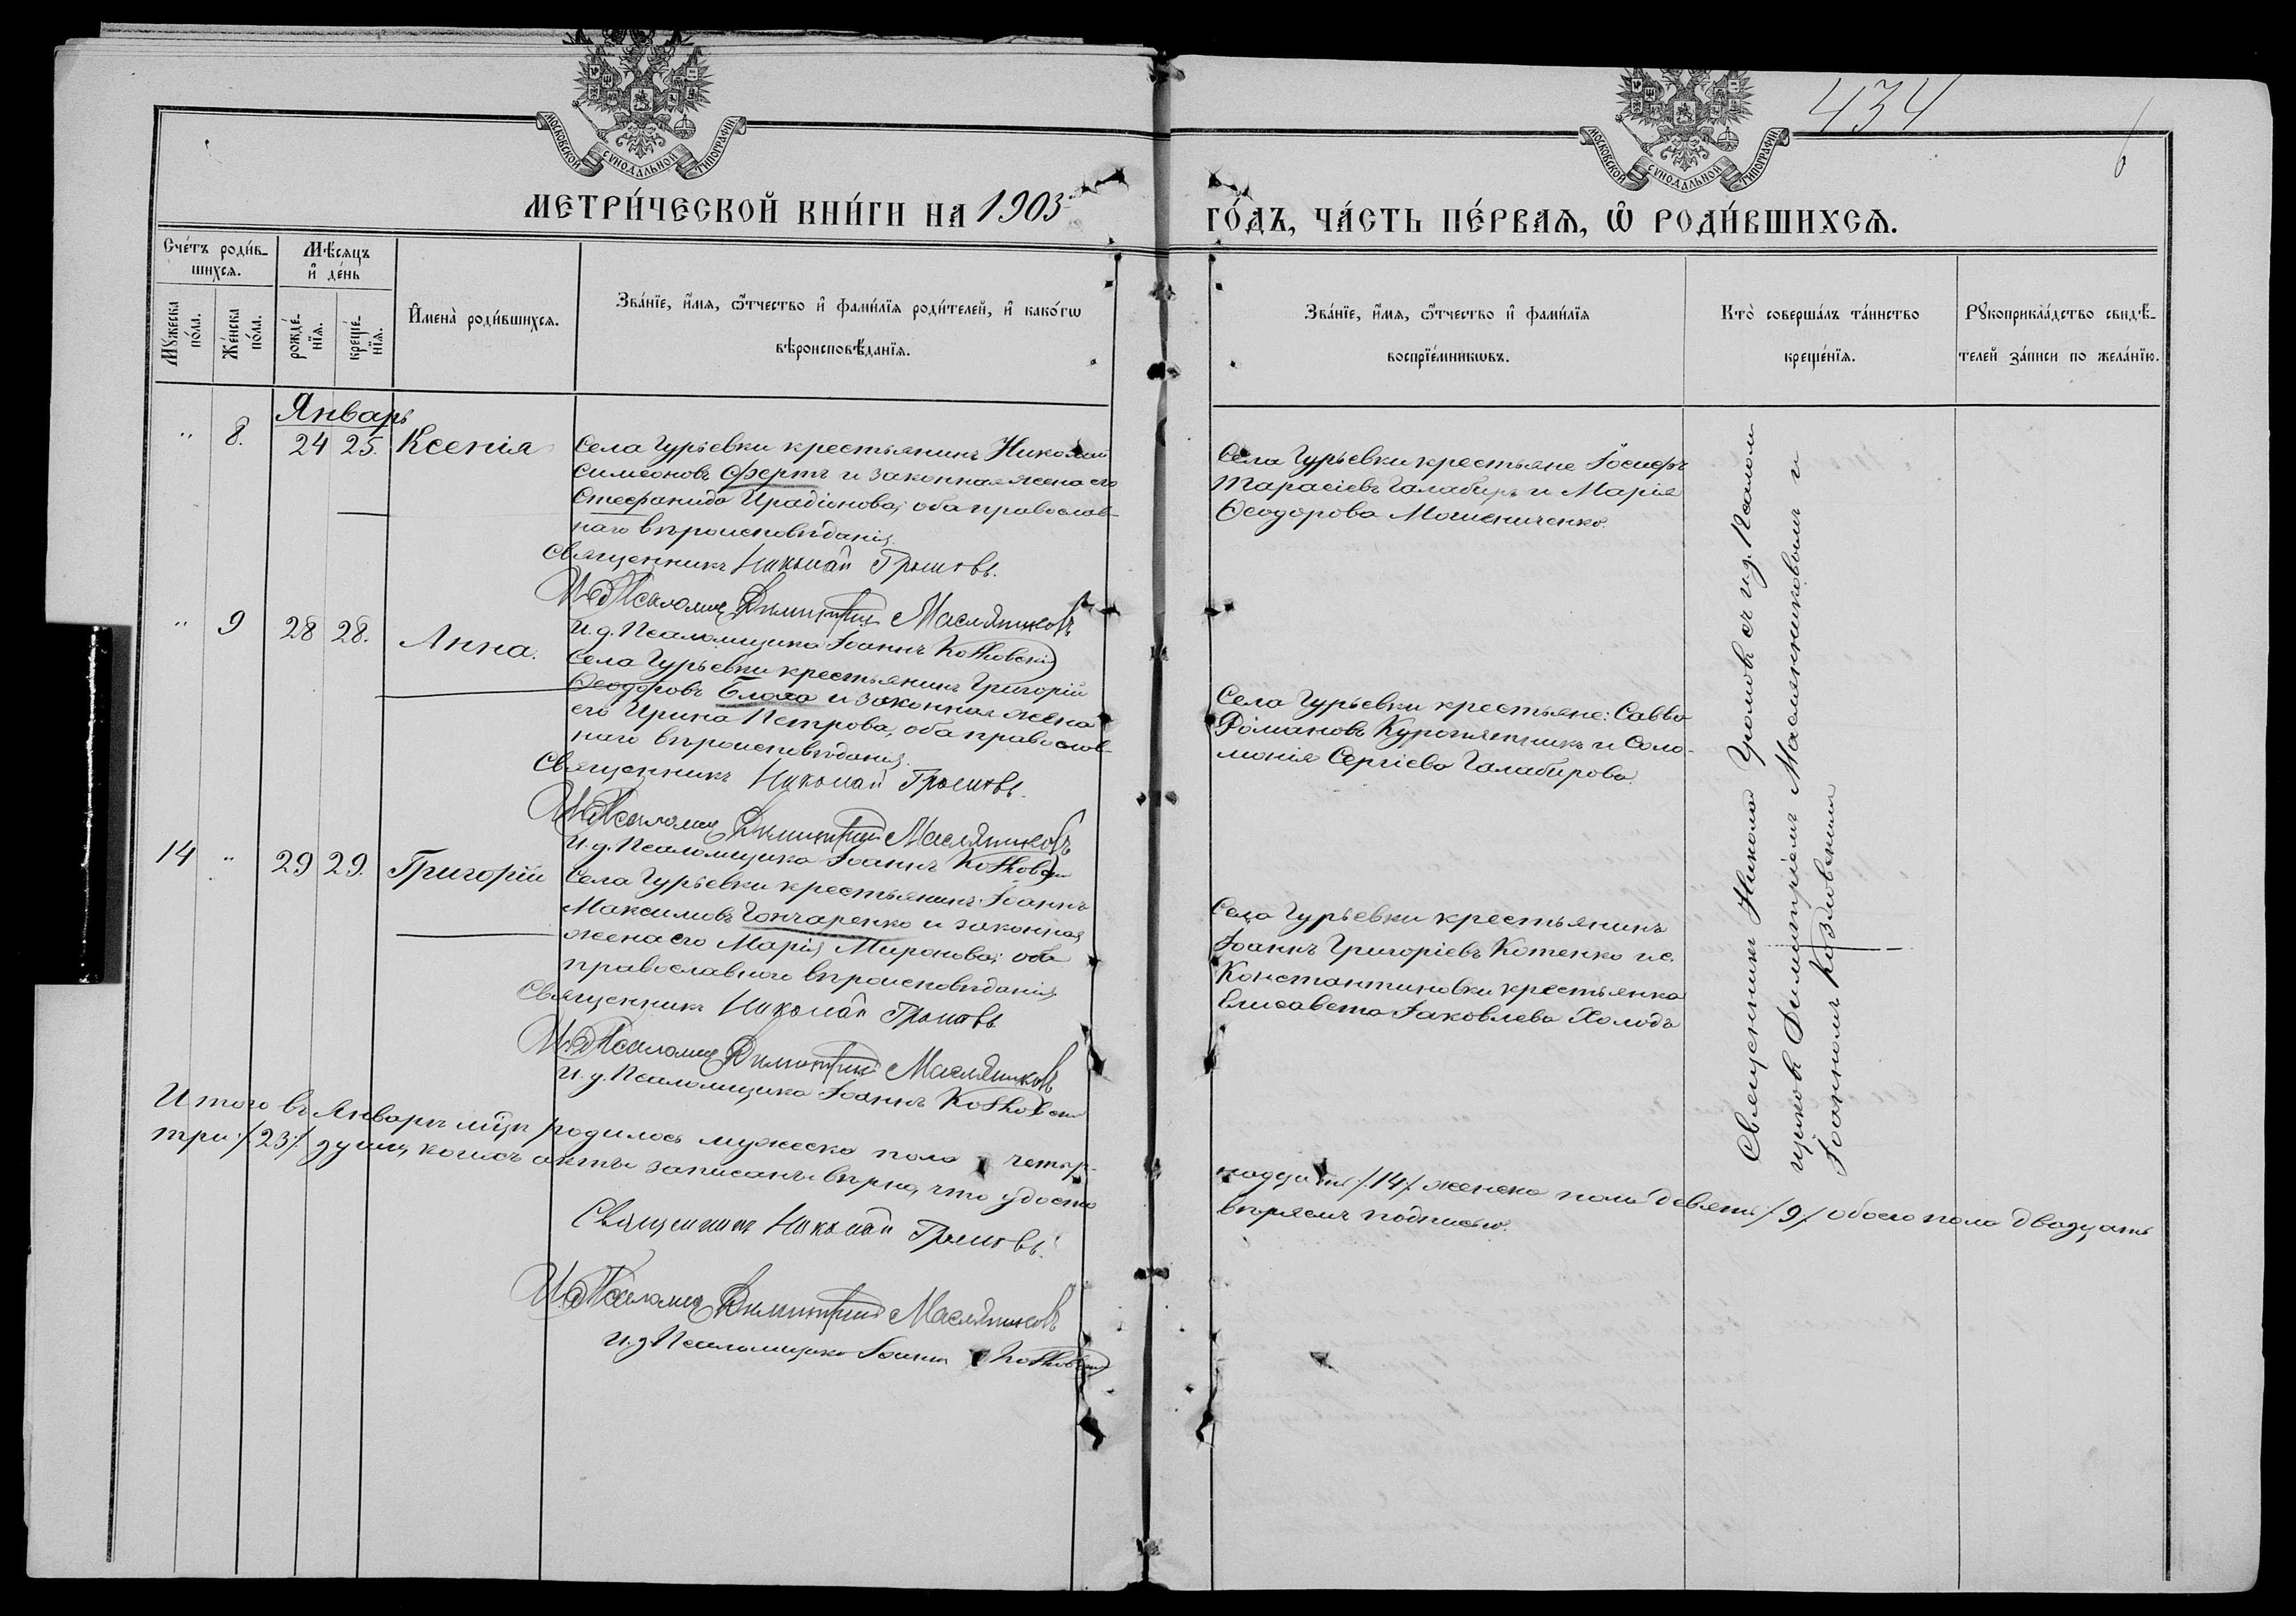 434
МОСКОВСКОЙ СУНОДАЛЬНОЙ ТИПОГРАФІИ
МОСКОВСКОЙ СУНОДАЛЬНОЙ ТИПОГРАФІИ
МЕТРИ́ЧЕСКОЙ КНИ́ГИ НА 1903
ГО́ДЪ, ЧА́СТЬ ПЕ́РВАЯ, Ѡ РОДИ́ВШИХСѦ.
Сче́тъ роди́в-
шихсѧ.
Мꙋжеска по́ла.
Же́нска по́ла.
Мѣ́сяцъ
и҆ де́нь
рожде́-
нїѧ.
креще́-
нїѧ.
И҆мена̀ роди́вшихсѧ.
Зва́нїе, и҆́мѧ, ѻ҆́тчество и҆ фами́лїѧ роди́телей, и҆ како́гѡ
вѣроисповѣ́данїѧ.
Зва́нїе, и҆́мѧ, ѻ҆́тчество и҆ фами́лїѧ
воспрїе́мникѡвъ.
Кто̀ соверша́лъ та́инство
креще́нїѧ.
Рꙋкоприкла́дство свидѣ́-
телей за́писи по жела́нїю.
Январь
" 8. 24 25. Ксенія
Села Гурьевки крестьянинъ Николай
Симеоновъ Фертъ и законная жена его
Стефанида Ирадіонова; оба православ-
наго вѣроисповѣданія.
Священникъ Николай Громовъ.
И. д. Псаломщ Димитрій Масляниковъ
И. д. Псаломщика Іоаннъ Козловскій
Села Гурьевки крестьяне Іосифъ
Тарасіевъ Галабиръ и Марія
Ѳеодорова
" 9 28 28. Анна.
Села Гурьевки крестьянинъ Григорій
Ѳеодоровъ Блоха и законная жена
его Ирина Петрова, оба православ-
наго вѣроисповѣданія.
Священникъ Николай Громовъ.
И. д. Псаломщ Димитрій Масляниковъ
И. д. Псаломщика Іоаннъ Козловскій
Села Гурьевки крестьяне: Савва
Романовъ Куропятникъ и Соло-
монія Сергіева Галабирова.
14 " 29 29. Григорій
Села Гурьевки крестьянинъ Іоаннъ
Максимовъ Гончаренко и законная
жена его Марія Миронова; оба
православнаго вѣроисповѣданія
Священникъ Николай Громовъ
И. д. Псаломщ Димитрій Масляниковъ
И. д. Псаломщика Іоаннъ Козловскій
Села Гурьевки крестьянинъ
Іоаннъ Григоріевъ Котенко и с.
Константиновки крестьянка
Елисавета Іаковлева Холодъ
Священникъ Николай Громовъ съ и. д. Псалом-
щиковъ Димитріемъ Маслянниковымъ и
Іоанномъ Козловскимъ
Итого въ Январѣ мцѣ родилось мужеска пола четыр-
надцать /14/ женска пола девять /9/ обоего пола двадцать
три /23/ души, коихъ акты записаны вѣрно, что удосто
вѣряемъ подписью.
Священникъ Николай Громовъ.
И. д. Псаломщ Димитрій Масляниковъ
И. д. Псаломщика Іоаннъ Козловскій